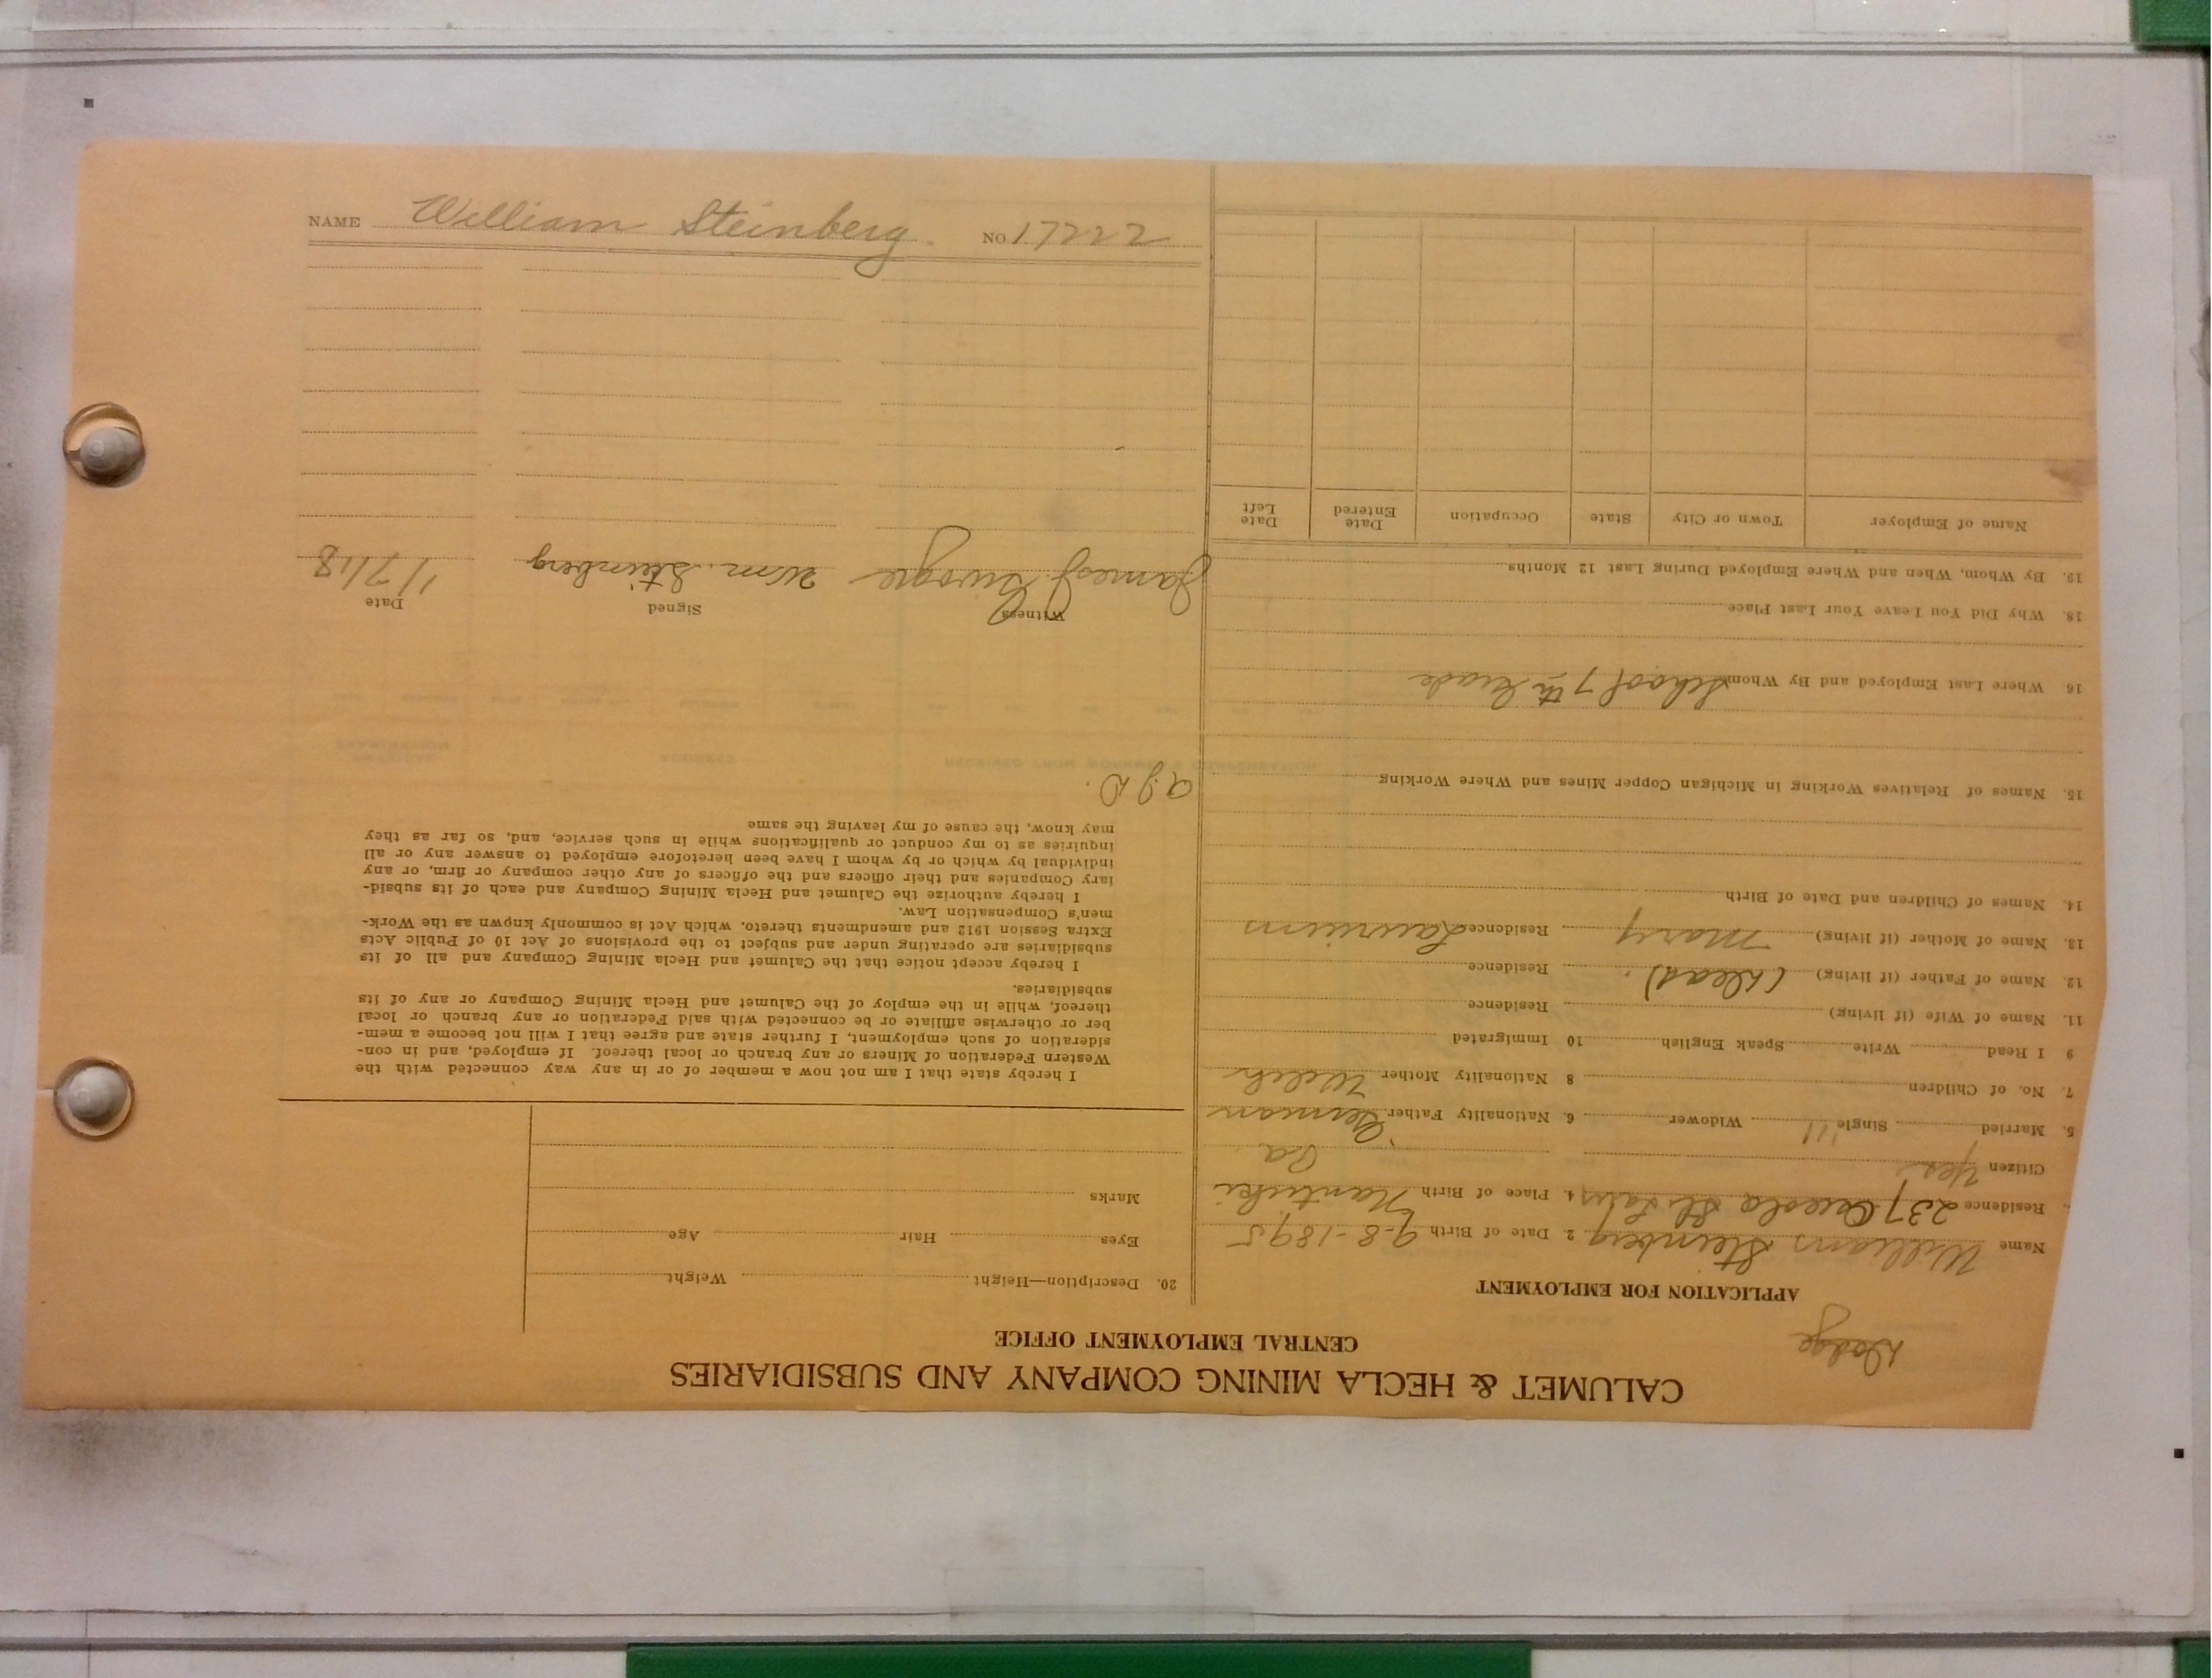 NAME William Steinberg NO 17222
CALUMET & HECLA MINING COMPANY AND SUBSIDIARIES
CENTRAL EMPLOYMENT OFFICE
Dodge
APPLICATION FOR EMPLOYMENT
Name William Steinberg 2 Date of Birth 9-8-1895
Residence 237 Osceola St. 4 Place of Birth
Citizen Yes Pa
5. Married Single 11 Widower 6. Nationality Father German
7. No. of Children 8 Nationality Mother Welch
9 I Read Write Speak English 10 Immigrated
11. Name of Wife (if living) Residence
12. Name of Father (if living) (Dead). Residence
13. Name of Mother (if living) Mary Residence Laurium
14. Names of Children and Date of Birth
15. Names of Relatives Working in Michigan Copper Mines and Where Working
16 Where Last Employed and By Whom School 7th Grade
18. Why Did You Leave Your Last Place
19. By Whom, When and Where Employed During Last 12 Months
Name of Employer Town or City State Occupation Date Entered Date Left
20. Description—Height Weight
Eyes Hair Age
Marks
I hereby state that I am not now a member of or in any way connected with the
Western Federation of Miners or any branch or local thereof. If employed, and in con-
sideration of such employment, I further state and agree that I will not become a mem-
ber or otherwise affiliate or be connected with said Federation or any branch or local
thereof, while in the employ of the Calumet and Hecla Mining Company or any of its
subsidiaries.
I hereby accept notice that the Calumet and Hecla Mining Company and all of its
subsidiaries are operating under and subject to the provisions of Act 10 of Public Acts
Extra Session 1912 and amendments thereto, which Act is commonly known as the Work-
men's Compensation Law.
I hereby authorize the Calumet and Hecla Mining Company and each of its subsid-
iary Companies and their officers and the officers of any other company or firm, or any
individual by which or by whom I have been heretofore employed to answer any or all
inquiries as to my conduct or qualifications while in such service, and, so far as they
may know, the cause of my leaving the same
Witness Signed Date
James Wm. Steinberg 1/7/18